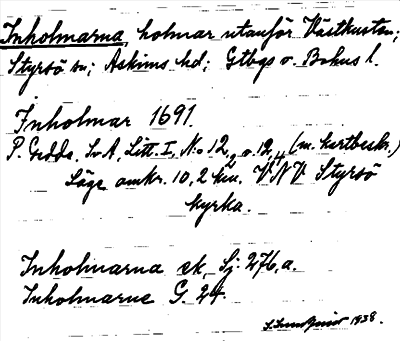 Inholmarna, holmar utanför Västkusten;
Styrsö sn; Askims hd; Gtbgs o. Bohus l.
Inholmar 1691.
P. Gedda. Sv A, Litt. I, No 12,2 o. 12,4 (m. kustbeskr.)
Läge omkr. 10,2 km. VNV Styrsö
kyrka.
Inholmarna ek, Sj: 276,a.
Inholmarne G. 24.
1938.